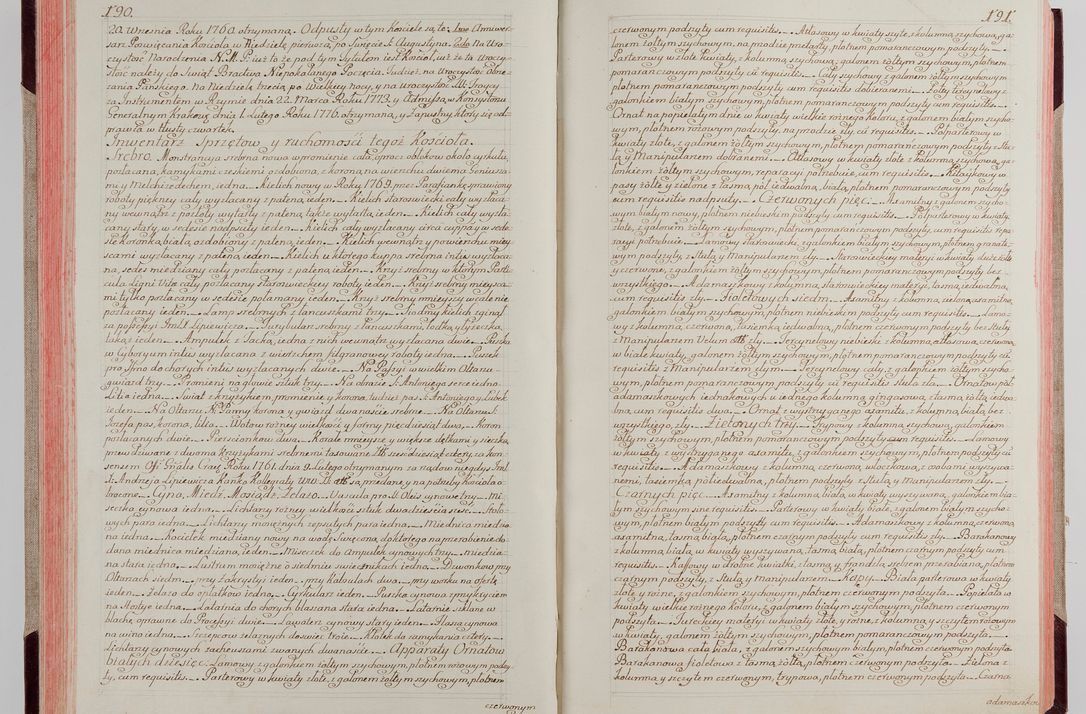 190.
20. Wresnia Roku 1760. otrzymana. Odpusty w tym Kościele są te
sari Poświęcania Kościoła w Niedzielę pierwszą, po Święcie S. Augustyna. na Uro-
czystość Narodzenia N.M.P. iuż to że pod tym Tytułem iest Kościoł, iuż że ta Uroczy-
stość należy do Swiąt Bractwa Niepokalanego Poczęcia. Tudzież na Uroczystość Obrze-
zania Pańskiego, na Niedzielę trzecią po Wielkiey nocy, y na Uroczystość SSS. Troycy
za Instrumentem w Rzymie dnia 22. Marca Roku 1773. y Admissą w Konsystorzu
Generalnym Krakow: dnia 1. Lutego Roku 1776. otrzymaną, y Zapustny, ktory się od-
prawia w tłusty czwartek.
Inwentarz Sprzętow, y ruchomości tegoż Kościoła.
Srebro. Monstrancya srebrna nowa w promienie cała, oprocz obłokow około cyrkułu,
pozłacana, kamykami czeskiemi ozdobiona, z koroną na wierzchu, dwiema Geniusza-
mi y Melchizedechem, iedna. Kielich nowy w Roku 1769. przez Parafianke sprawiony
roboty piękney cały wyzłacany z pateną ieden. Kielich staroswiecki cały wyzłaca-
ny wewnątrz z pozłoty wytarty z pateną także wytartą ieden. Kielich cały wyzła-
cany stary w sedesie nadpsuty ieden. Kielich cały wyzłacany circa cuppam w sede-
sie koronką białą ozdobiony z pateną, ieden. Kielich wewnątrz y po wierzchu miey-
scami wyzłacany z pateną ieden. Kielich w ktorego kuppa srebrna intus wyzłaca-
na, sedes miedziany cały pozłacany z pateną ieden. Krzyż srebrny w ktorym Parti-
cula Ligni Vitæ cały pozłacany staroswieckiey roboty ieden. Krzyż srebrny mieysca-
mi tylko pozłacany w sedesie połamany ieden. Krzyż srebrny mnieyszy wcale nie
pozłacany ieden. Lamp srebrnych z łancuszkami trzy. Siodmy kielich zginął
za possessyi Jmci X. Lipiewicza. Turybularz srebrny z łancuszkami, łodka, y łyżeczka
taka ieden. Ampułek z Tacką, iedna z nich wewnątrz wyzłacana dwie. Puszka
w Cyboryum intus wyzłacana z wierzchem filgranowey roboty iedna. Puszek
pro dno do chorych intus wyzłacanych dwie. Na Passyi w wielkim Ołtarzu
gwiazd trzy. Promieni na głowie sztuk trzy. Na obrazie S. Antoniego serce iedno
Lilia iedna. Świat z krzyżykiem, promienie, y korona, tudzież pas S. Antoniego y Lisbek
ieden. Na Ołtarzu N. Panny korona y gwiazd dwanascie srebrne. Na Ołtarzu S.
Jozefa pas, korona, lilia. Wotow rożney wielkości y formy pięćdziesiąt dwa. Koron
pozłacanych dwie. Pierscionkow dwa. Korale mnieysze y większe
przewdziwane z dwoma Krzyżykami srebrnemi tasowane ztt. szescdziesiąt cztery, za Kon-
sensem Off: Gnalis Crac: Roku 1761. dnia 9. Lutego otrzymanym za rządow niegdys Jmci
X. Andrzeja Lipiewicza Kanka Kollegiaty WW. SS. są przedane y na potrzeby kościoła o-
brocone. Cyna, Miedź, Mosiądz, Żelazo. Vascula pro SS. Oleis cynowe trzy. Mi-
seczka cynowa iedna. Lichtarzy rożney wielkości sztuk dwadziescia szesc. Stolo-
wych para iedna. Lichtarzy mosiężnych zepsutych para iedna. Miednica miedzia-
na iedna. Kociełek miedziany nowy na wodę Święconą, do ktorego na przerobienie do-
dano miednica miedziana, ieden. Miseczek do ampułek cynowych trzy. miedzia-
na stara iedna. Lustrum mosiężne o siedmiu swiecznikach iedna. Dzwonkow przy
Ołtarzach siedm. przy Zakrystyi ieden. przy kabułach dwa. przy worku na ofiarę
ieden. Żelazo do opłatkow iedno. Cyrkularz ieden. Puszka cynowa z przykryciem
na Hostye iedna. Latarnia do chorych blaszana stara iedna. Latarnie szklane w
blachę oprawne do Processyi dwie. Lawaterz cynowy stary ieden. Flasza cynowa
na wino iedna. Szczypcow żelaznych do swiec troie. Kłodek do zamykania cztery.
Lichtarzy cynowych zacheuszami zwanych dwanascie. Apparaty Ornatow
białych dziesięć. Lamowy z galonkiem żołtym szychowym, płotnem rożowym podszy-
ty, cum requisitis. Parterowy w kwiaty złote, z galonem żołtym szychowym, płotnem
czerwonym
191.
czerwonym podszyty cum requisitis. Atłasowy w kwiaty szyte, z kolumną szychową, ga-
lonem żołtym szychowym, na przodzie przetarty, płotnem pomarańczowym podszyty.
Parterowy w złote kwiaty, z kolumną szychową, galonem żołtym szychowym, płotnem
pomarańczowym podszyty cū requisitis. Cały szychowy z galonem żołtym szychowym
płotnem pomarańczowym podszyty, cum requisitis dobieranemi. Żołty
galonkiem białym szychowym, płotnem pomarańczowym podszyty cum requisitis.
Ornat na popielatym dnie w kwiaty wielkie rożnego koloru, z galonem białym szycho-
wym, płotnem rożowym podszyty, na przodzie zły cū requisitis. Połparterowy w
kwiaty złote, z galonem żołtym szychowym, płotnem pomarańczowym podszyty Stu-
lą y Manipularzem dobranemi. Atłasowy w kwiaty złote z kolumną szychową, ga-
lonkiem żołtym szychowym, reparacyi potrzebuie, cum requisitis. Kitaykowy w
pasy żołte y zielone z tasmą poł iedwabną, białą, płotnem pomarańczowym podszyty
cum requisitis nadpsuty. Czerwonych pięc. Axamitny z galonem szycho-
wym białym nowy, płotnem niebieskim podszyty cum requisitis. Połparterowy w kwiaty
złote, z galonem żołtym szychowym, płotnem pomarańczowym podszyty, cum requisitis repa-
racyi potrzebuie. Lamowy staroswiecki, z galonkiem białym szychowym, płotnem granato-
wym podszyty, z Stułą y Manipularzem zły. Staroswieckiey materyi w kwiaty duże żołte
y czerwone, z galonkiem żołtym szychowym, płotnem pomarańczowym podszyty bez
wszystkiego. Adamaszkowy z kolumną, staroswieckiey materyi, tasmą iedwabną,
cum requisitis zły. Fioletowych siedm. Axamitny z kolumną zieloną axamitną,
galonkiem białym szychowym, płotnem niebieskim podszyty cum requisitis. Lamo-
wy z kolumną czerwoną, tasiemką iedwabną, płotnem czerwonym podszyty bez Stuły
z Manipularzem Velum zły. Tercynelowy niebieski z kolumną, atłasową, czerwoną,
w białe kwiaty, galonem żołtym szychowym, płotnem pomarańczowym podszyty cū
requisitis z Manipularzem złym. Tercynelowy cały z galonkiem żołtym szycho-
wym, płotnem pomarańczowym podszyty cū requisitis stułą zła. Ornatow poł
adamaszkowych iednakowych w iednego kolumną gingasową, z tasmą żołtą iedwa-
bną, cum requisitis dwa. Ornat z wystrzyganego axamitu, z kolumną białą, bez
wszystkiego zły. Zielonych trzy. Trypowy z kolumną szychową, galonkiem
żołtym szychowym, płotnem pomarańczowym podszyty cum requisitis. Lamowy
w kwiaty z wystrzyganego axamitu, z galonkiem szychowym, płotnem podszyty cū
requisitis. Adamaszkowy z kolumną czerwoną, włoczkową, z osobami wyszywa-
nemi, tasiemką połiedwabną, płotnem podszyty z Stułą y Manipularzem zły.
Czarnych pięc. Axamitny z kolumną białą, w kwiaty wyszywaną, galonkiem bia-
łym szychowym sine requisitis. Parterowy w kwiaty białe, z galonem białym szycho-
wym, płotnem białym podszyty cum requisitis. Adamaszkowy z kolumną czerwoną
axamitną, tasmą białą, płotnem czarnym podszyty cum requisitis zły. Barakanowy
z kolumną białą, w kwiaty wyszywaną, tasmą białą, płotnem czarnym podszyty cum
requisitis. Kaffowy w drobne kwiatki, z tasmą, y frandzlą srebrem przerabianą, płotnem
czarnym podszyty, z Stułą, y Manipularzem. Kapy. Biała parterowa w kwiaty
złote, y rożne, z galonkiem szychowym, płotnem czerwonym podszyta. Popielata w
kwiaty wielkie rożnego koloru, z galonem białym szychowym, płotnem czerwonym
podszyta. Tureckiey materyi w kwiaty złote, y rożne, z kolumną y szczytem rożowym
w kwiaty, galonem żołtym szychowym, płotnem pomarańczowym podszyta.
Barakanowa cała biała, z galonem szychowym białym, płotnem czerwonym podszyta.
Barakanowa fioletowa z tasmą żołtą, płotnem czerwonym podszyta. Zielona z
kolumną y szczytem czerwonym, trypowa, płotnem czerwonym podszyta. Czarna
adamaszkow